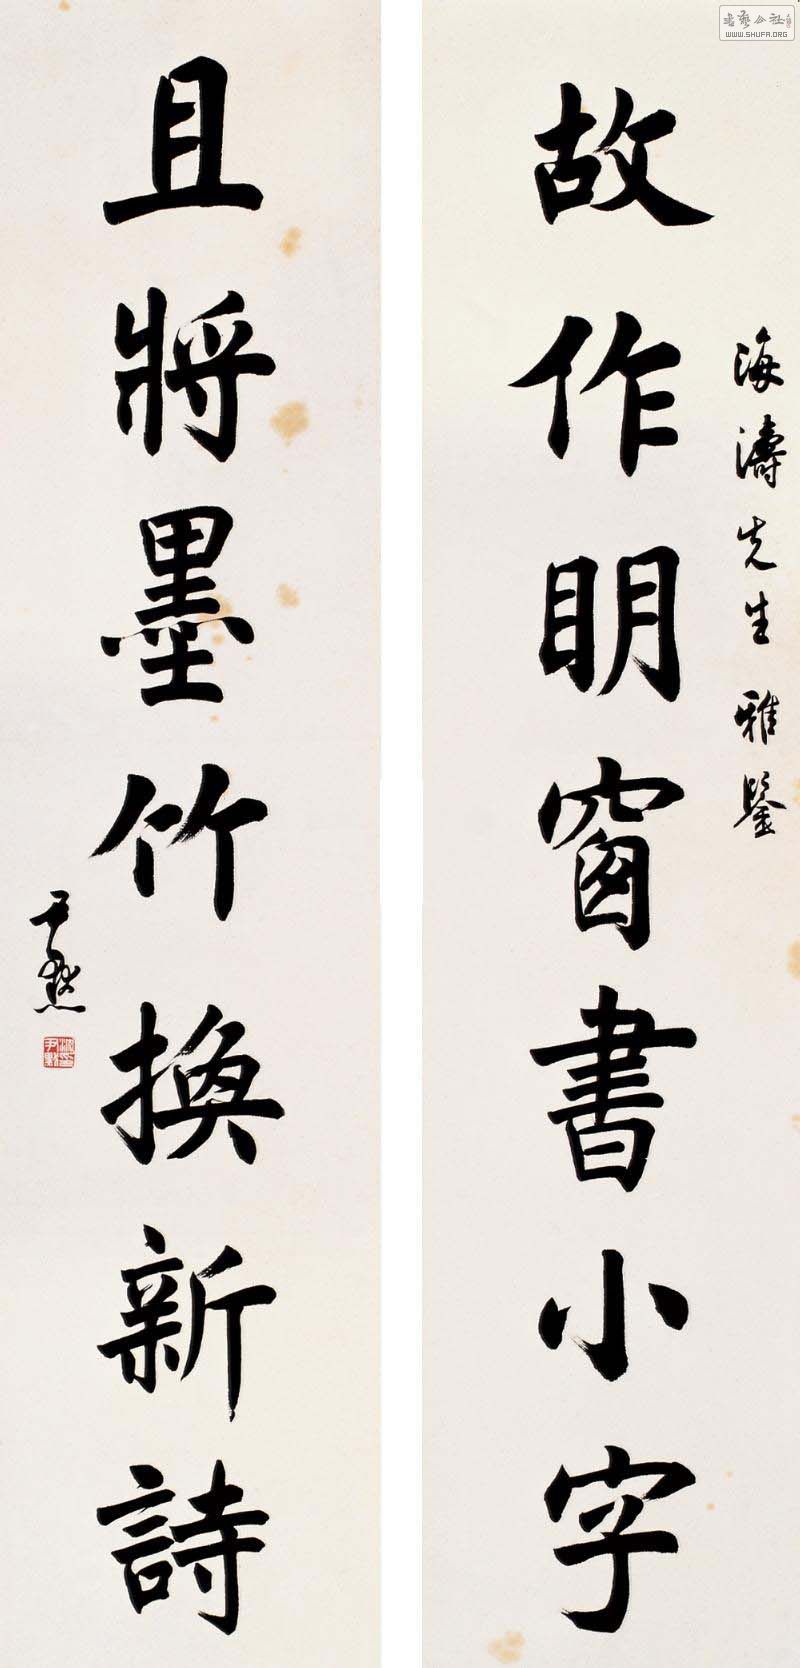 海濤先生雅鑒
故作明窗書小字
且將墨竹換新詩
尹默
沈尹默印
書藝公社
WWW.SHUFA.ORG